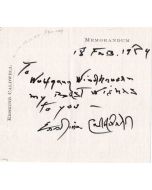 MEMORANDUM.
18 Feb. 1984
ERSKINE CALDWELL
To Wolfgang Windhausen
my Best Wishes
to you —
Erskine Caldwell